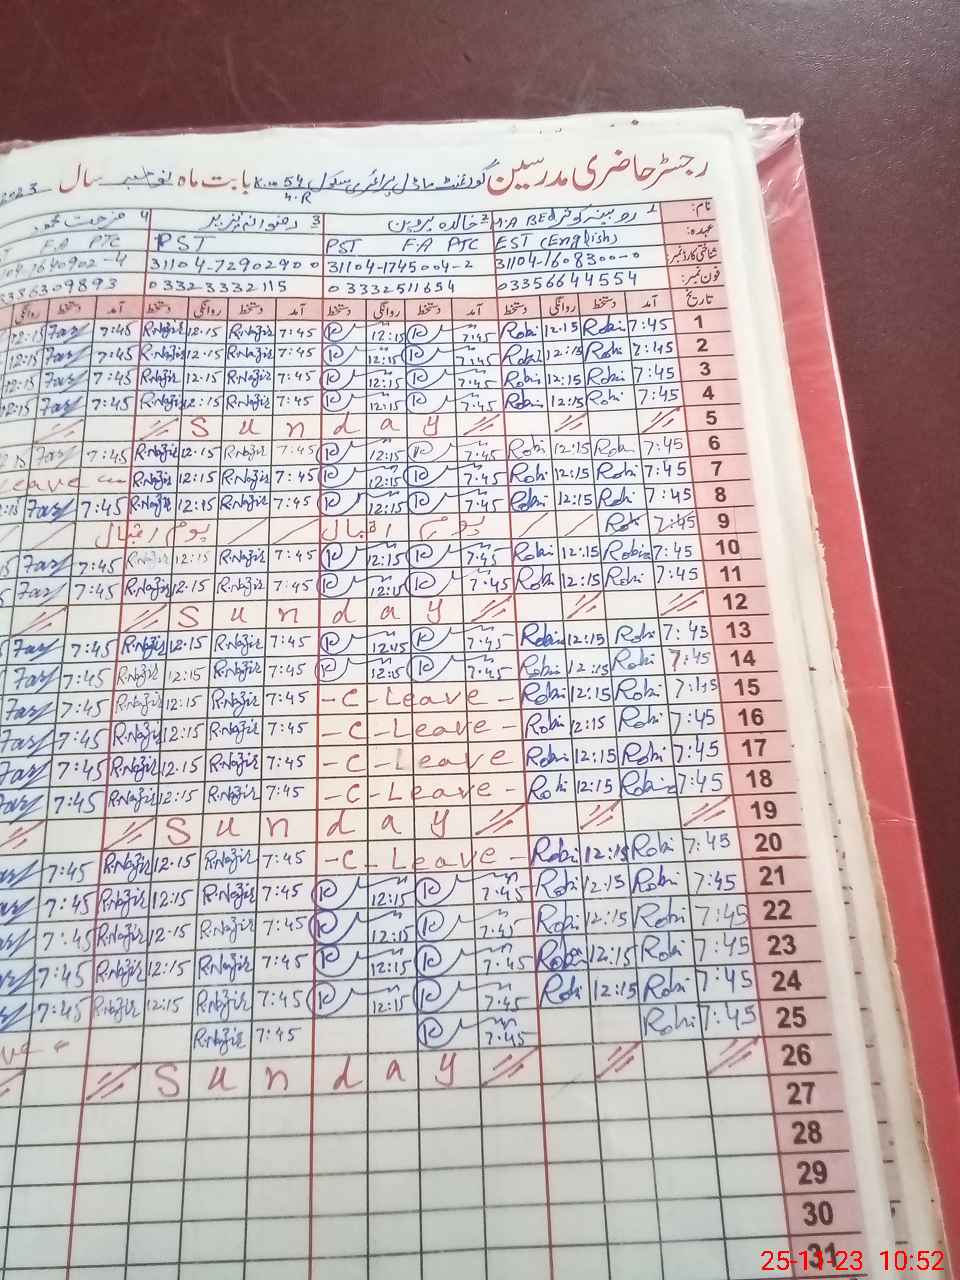 رجسٹر حاضری مدرسین گورنمنٹ ماڈل پرائمری سکول 54 بابت ماہ نومبر سال 2023
4.R
نام: 1 روبینہ کوثر M.A BEd 2 خالدہ پروین 3 رضوانہ نزیر 4
عہدہ: EST (English) PST F.A PTC PST F.A PTC
شناختی کارڈ نمبر: 31104-1608300-0 31104-1745004-2 31104-7290290-0 04-1640902-4
فون نمبر: 03356644554 03332511654 0332-3332115 3356309893
تاریخ آمد دستخط روانگی دستخط آمد دستخط روانگی دستخط آمد دستخط روانگی دستخط آمد دستخط روانگی
1 7:45 Robi 12:15 Robi 7:45 12:15 7:45 R.Nazir 12:15 R.Nazir 7:45 12:15
2 7:45 Robi 12:15 Robi 7:45 12:15 7:45 R.Nazir 12:15 R.Nazir 7:45 12:15
3 7:45 Robi 12:15 Robi 7:45 12:15 7:45 R.Nazir 12:15 R.Nazir 7:45 12:15
4 7:45 Robi 12:15 Robi 7:45 12:15 7:45 R.Nazir 12:15 R.Nazir 7:45 12:15
5 Sunday
6 7:45 Robi 12:15 Robi 7:45 12:15 7:45 R.Nazir 12:15 R.Nazir 7:45
7 7:45 Robi 12:15 Robi 7:45 12:15 7:45 R.Nazir 12:15 R.Nazir Leave
8 7:45 Robi 12:15 Robi 7:45 12:15 7:45 R.Nazir 12:15 R.Nazir 7:45
9 7:45 Robi یوم اقبال یوم اقبال
10 7:45 Robi 12:15 Robi 7:45 12:15 7:45 R.Nazir 12:15 R.Nazir 7:45
11 7:45 Robi 12:15 Robi 7:45 12:15 7:45 R.Nazir 12:15 R.Nazir 7:45
12 Sunday
13 7:45 Robi 12:15 Robi 7:45 12:15 7:45 R.Nazir 12:15 R.Nazir 7:45
14 7:45 Robi 12:15 Robi 7:45 12:15 7:45 R.Nazir 12:15 R.Nazir 7:45
15 7:45 Robi 12:15 Robi -C-Leave- 7:45 R.Nazir 12:15 R.Nazir 7:45
16 7:45 Robi 12:15 Robi -C-Leave- 7:45 R.Nazir 12:15 R.Nazir 7:45
17 7:45 Robi 12:15 Robi -C-Leave- 7:45 R.Nazir 12:15 R.Nazir 7:45
18 7:45 Robi 12:15 Robi -C-Leave- 7:45 R.Nazir 12:15 R.Nazir 7:45
19 Sunday
20 7:45 Robi 12:15 Robi -C-Leave- 7:45 R.Nazir 12:15 R.Nazir 7:45
21 7:45 Robi 12:15 Robi 7:45 12:15 7:45 R.Nazir 12:15 R.Nazir 7:45
22 7:45 Robi 12:15 Robi 7:45 12:15 7:45 R.Nazir 12:15 R.Nazir 7:45
23 7:45 Robi 12:15 Robi 7:45 12:15 7:45 R.Nazir 12:15 R.Nazir 7:45
24 7:45 Robi 12:15 Robi 7:45 12:15 7:45 R.Nazir 12:15 R.Nazir 7:45
25 7:45 Robi 7:45 7:45 R.Nazir
26 Sunday
27
28
29
30
31
25-11-23 10:52